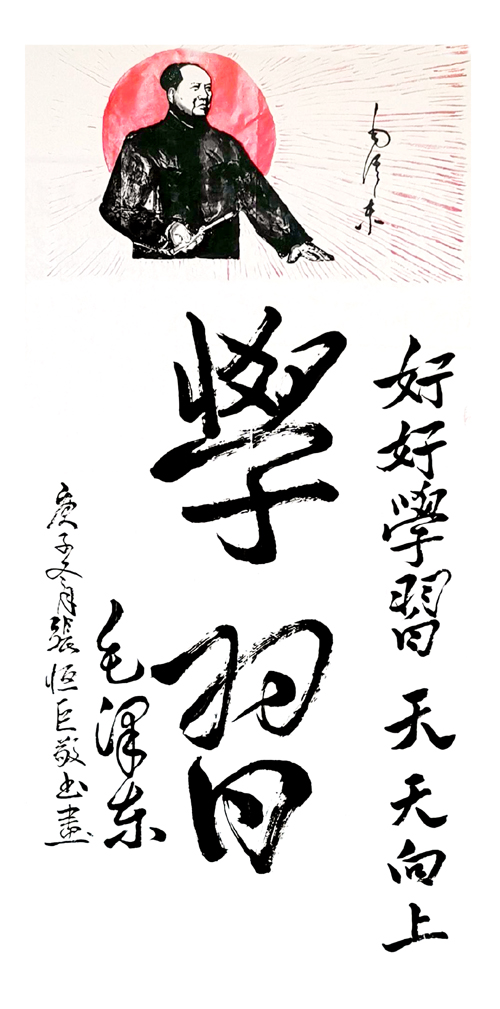 毛泽东
好好學習天天向上
學習
毛泽东
庚子冬月張恒巨敬书畫